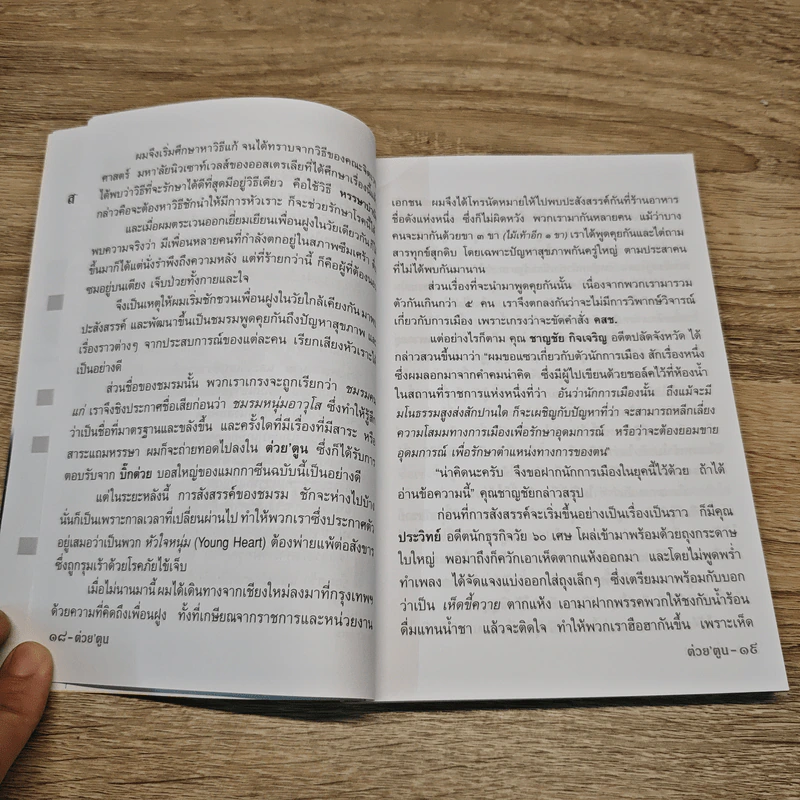 ผมจึงเริ่มศึกษาหาวิธีแก้ จนได้ทราบจากวิธีของคณะจิต
ศาสตร์ มหา'ลัยนิวเซาท์เวลส์ของออสเตรเลียที่ได้ศึกษาเรื่องนี้
ได้พบว่าวิธีที่จะรักษาได้ดีที่สุดมีอยู่วิธีเดียว คือใช้วิธี หรรษา
กล่าวคือจะต้องหาวิธีชักนำให้มีการหัวเราะ ก็จะช่วยรักษาโรคนี้ได้
และเมื่อผมตระเวนออกเยี่ยมเยียนเพื่อนฝูงในวัยเดียวกัน
พบความจริงว่า มีเพื่อนหลายคนที่กำลังตกอยู่ในสภาพซึมเศร้า
ขึ้นมาก็ได้แต่นั่งรำพึงถึงความหลัง แต่ที่ร้ายกว่านี้ ก็คือผู้ที่ต้องนอน
ซมอยู่บนเตียง เจ็บป่วยทั้งกายและใจ
จึงเป็นเหตุให้ผมเริ่มชักชวนเพื่อนฝูงในวัยใกล้เคียงกันมาพบ
ปะสังสรรค์ และพัฒนาขึ้นเป็นชมรมพูดคุยกันถึงปัญหาสุขภาพ และ
เรื่องราวต่างๆ จากประสบการณ์ของแต่ละคน เรียกเสียงหัวเราะได้
เป็นอย่างดี
ส่วนชื่อของชมรมนั้น พวกเราเกรงจะถูกเรียกว่า ชมรมคน
แก่ เราจึงชิงประกาศชื่อเสียก่อนว่า ชมรมหนุ่มอาวุโส ซึ่งทำให้รู้สึก
ว่าเป็นชื่อที่มาตรฐานและขลังขึ้น และครั้งใดที่มีเรื่องที่มีสาระ หรือ
สาระแถมหรรษา ผมก็จะถ่ายทอดไปลงใน ต่วย'ตูน ซึ่งก็ได้รับการ
ตอบรับจาก บิ๊กต่วย บอสใหญ่ของแมกกาซีนฉบับนี้เป็นอย่างดี
แต่ในระยะหลังนี้ การสังสรรค์ของชมรม ชักจะห่างไปบ้าง
นั่นก็เป็นเพราะกาลเวลาที่เปลี่ยนผ่านไป ทำให้พวกเราซึ่งประกาศตัว
อยู่เสมอว่าเป็นพวก หัวใจหนุ่ม (Young Heart) ต้องพ่ายแพ้ต่อสังขาร
ซึ่งถูกรุมเร้าด้วยโรคภัยไข้เจ็บ
เมื่อไม่นานมานี้ ผมได้เดินทางจากเชียงใหม่ลงมาที่กรุงเทพฯ
ด้วยความที่คิดถึงเพื่อนฝูง ทั้งที่เกษียณจากราชการและหน่วยงาน
๑๘-ต่วย'ตูน
ส
เอกชน ผมจึงได้โทรนัดหมายให้ไปพบปะสังสรรค์กันที่ร้านอาหาร
ชื่อดังแห่งหนึ่ง ซึ่งก็ไม่ผิดหวัง พวกเรามากันหลายคน แม้ว่าบาง
คนจะมากันด้วยขา ๓ ขา (ไม้เท้าอีก ๑ ขา) เราได้พูดคุยกันและไต่ถาม
สารทุกข์สุกดิบ โดยเฉพาะปัญหาสุขภาพกันครู่ใหญ่ ตามประสาคน
ที่ไม่ได้พบกันมานาน
ส่วนเรื่องที่จะนำมาพูดคุยกันนั้น เนื่องจากพวกเรามารวม
ตัวกันเกินกว่า ๕ คน เราจึงตกลงกันว่าจะไม่มีการวิพากษ์วิจารณ์
เกี่ยวกับการเมือง เพราะเกรงว่าจะขัดคำสั่ง คสช.
แต่อย่างไรก็ตาม คุณ ชาญชัย กิจเจริญ อดีตปลัดจังหวัด ได้
กล่าวสวนขึ้นมาว่า "ผมขอแซวเกี่ยวกับตัวนักการเมือง สักเรื่องหนึ่ง
ซึ่งผมลอกมาจากคำคมน่าคิด ซึ่งมีผู้ไปเขียนด้วยชอล์คไว้ที่ห้องน้ำ
ในสถานที่ราชการแห่งหนึ่งที่ว่า อันว่านักการเมืองนั้น ถึงแม้จะมี
มโนธรรมสูงส่งสักปานใด ก็จะเผชิญกับปัญหาที่ว่า จะสามารถหลีกเลี่ยง
ความโสมมทางการเมืองเพื่อรักษาอุดมการณ์ หรือว่าจะต้องยอมขาย
อุดมการณ์ เพื่อรักษาตำแหน่งทางการของตน"
"น่าคิดนะครับ จึงขอฝากนักการเมืองในยุคนี้ไว้ด้วย ถ้าได้
อ่านข้อความนี้" คุณชาญชัยกล่าวสรุป
ก่อนที่การสังสรรค์จะเริ่มขึ้นอย่างเป็นเรื่องเป็นราว ก็มีคุณ
ประวิทย์ อดีตนักธุรกิจวัย ๖๐ เศษ โผล่เข้ามาพร้อมด้วยถุงกระดาษ
ใบใหญ่ พอมาถึงก็ควักเอาเห็ดตากแห้งออกมา และโดยไม่พูดพร่ำ
ทำเพลง ได้จัดแจงแบ่งออกใส่ถุงเล็กๆ ซึ่งเตรียมมาพร้อมกับบอก
ว่าเป็น เห็ดขี้ควาย ตากแห้ง เอามาฝากพรรคพวกให้ชงกับน้ำร้อน
ดื่มแทนน้ำชา แล้วจะติดใจ ทำให้พวกเราฮือฮากันขึ้น เพราะเห็ด
ต่วย'ตูน-๑๙